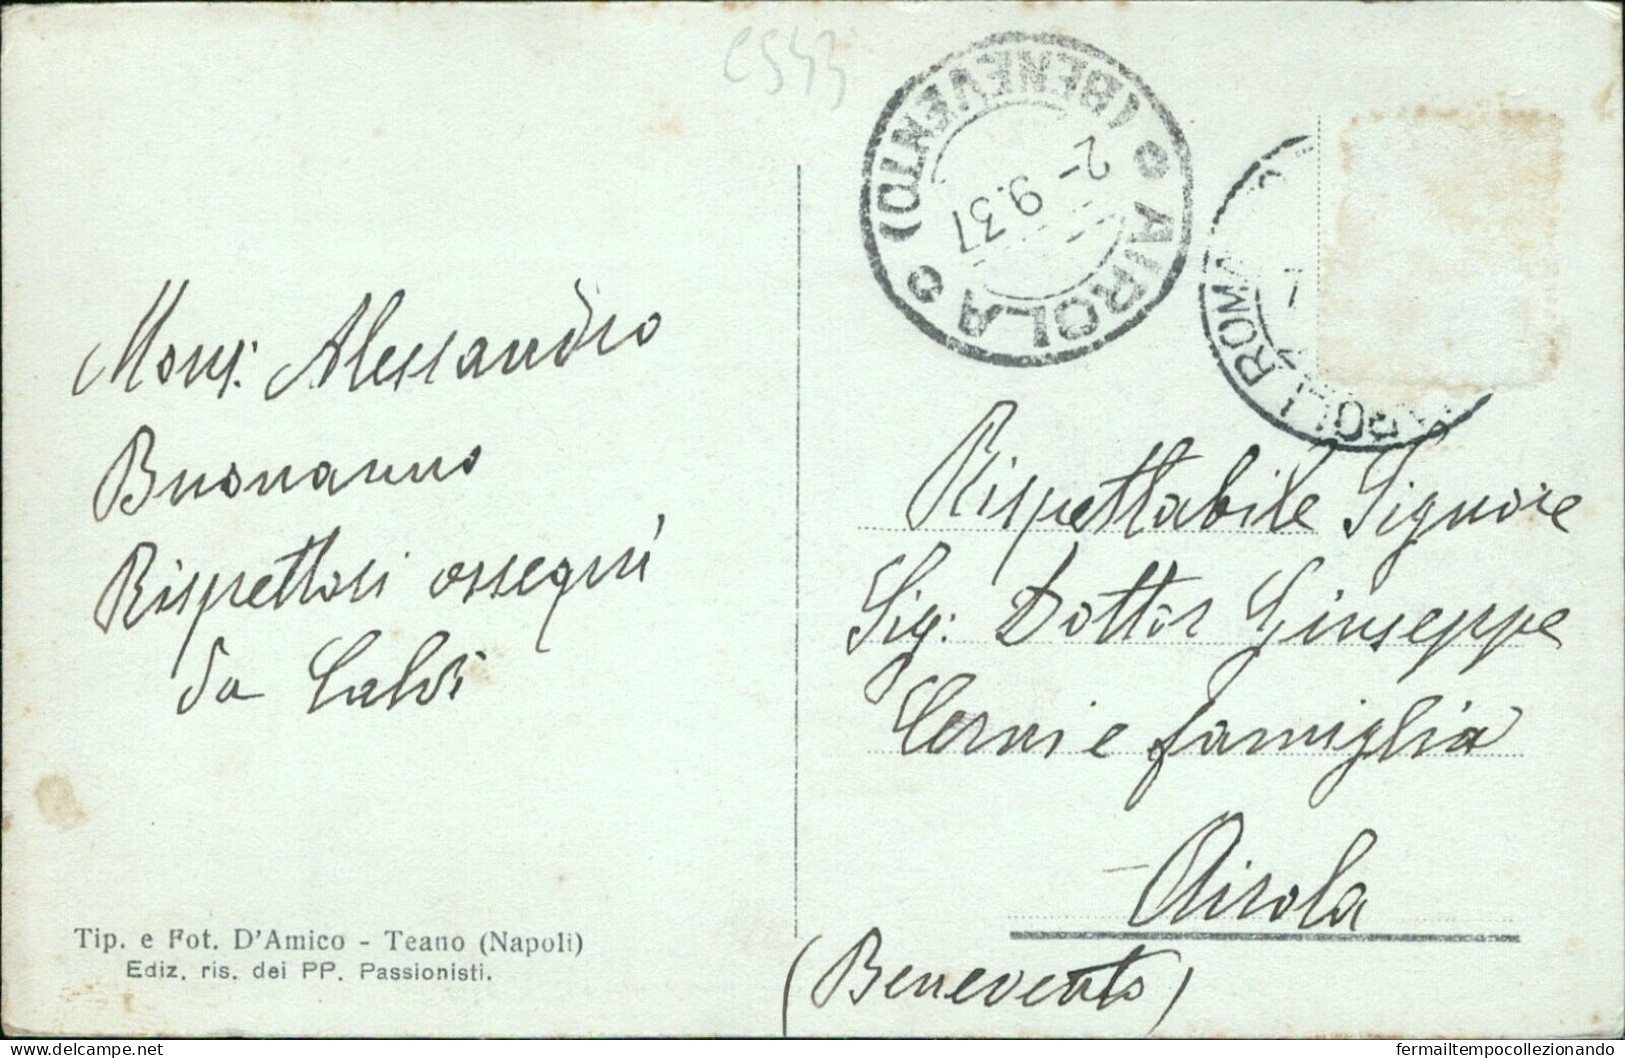 c543
AIROLA
(BENEVENTO)
2-9.37
ROMA
Mons. Alessandro
Buonanno
Rispettosi ossequi
da Calvi
Rispettabile Signore
Sig: Dottor Giuseppe
e famiglia
Airola
(Benevento)
Tip. e Fot. D'Amico - Teano (Napoli)
Ediz. ris. dei PP. Passionisti.
https://www.delcampe.net
fermailtempocollezionando